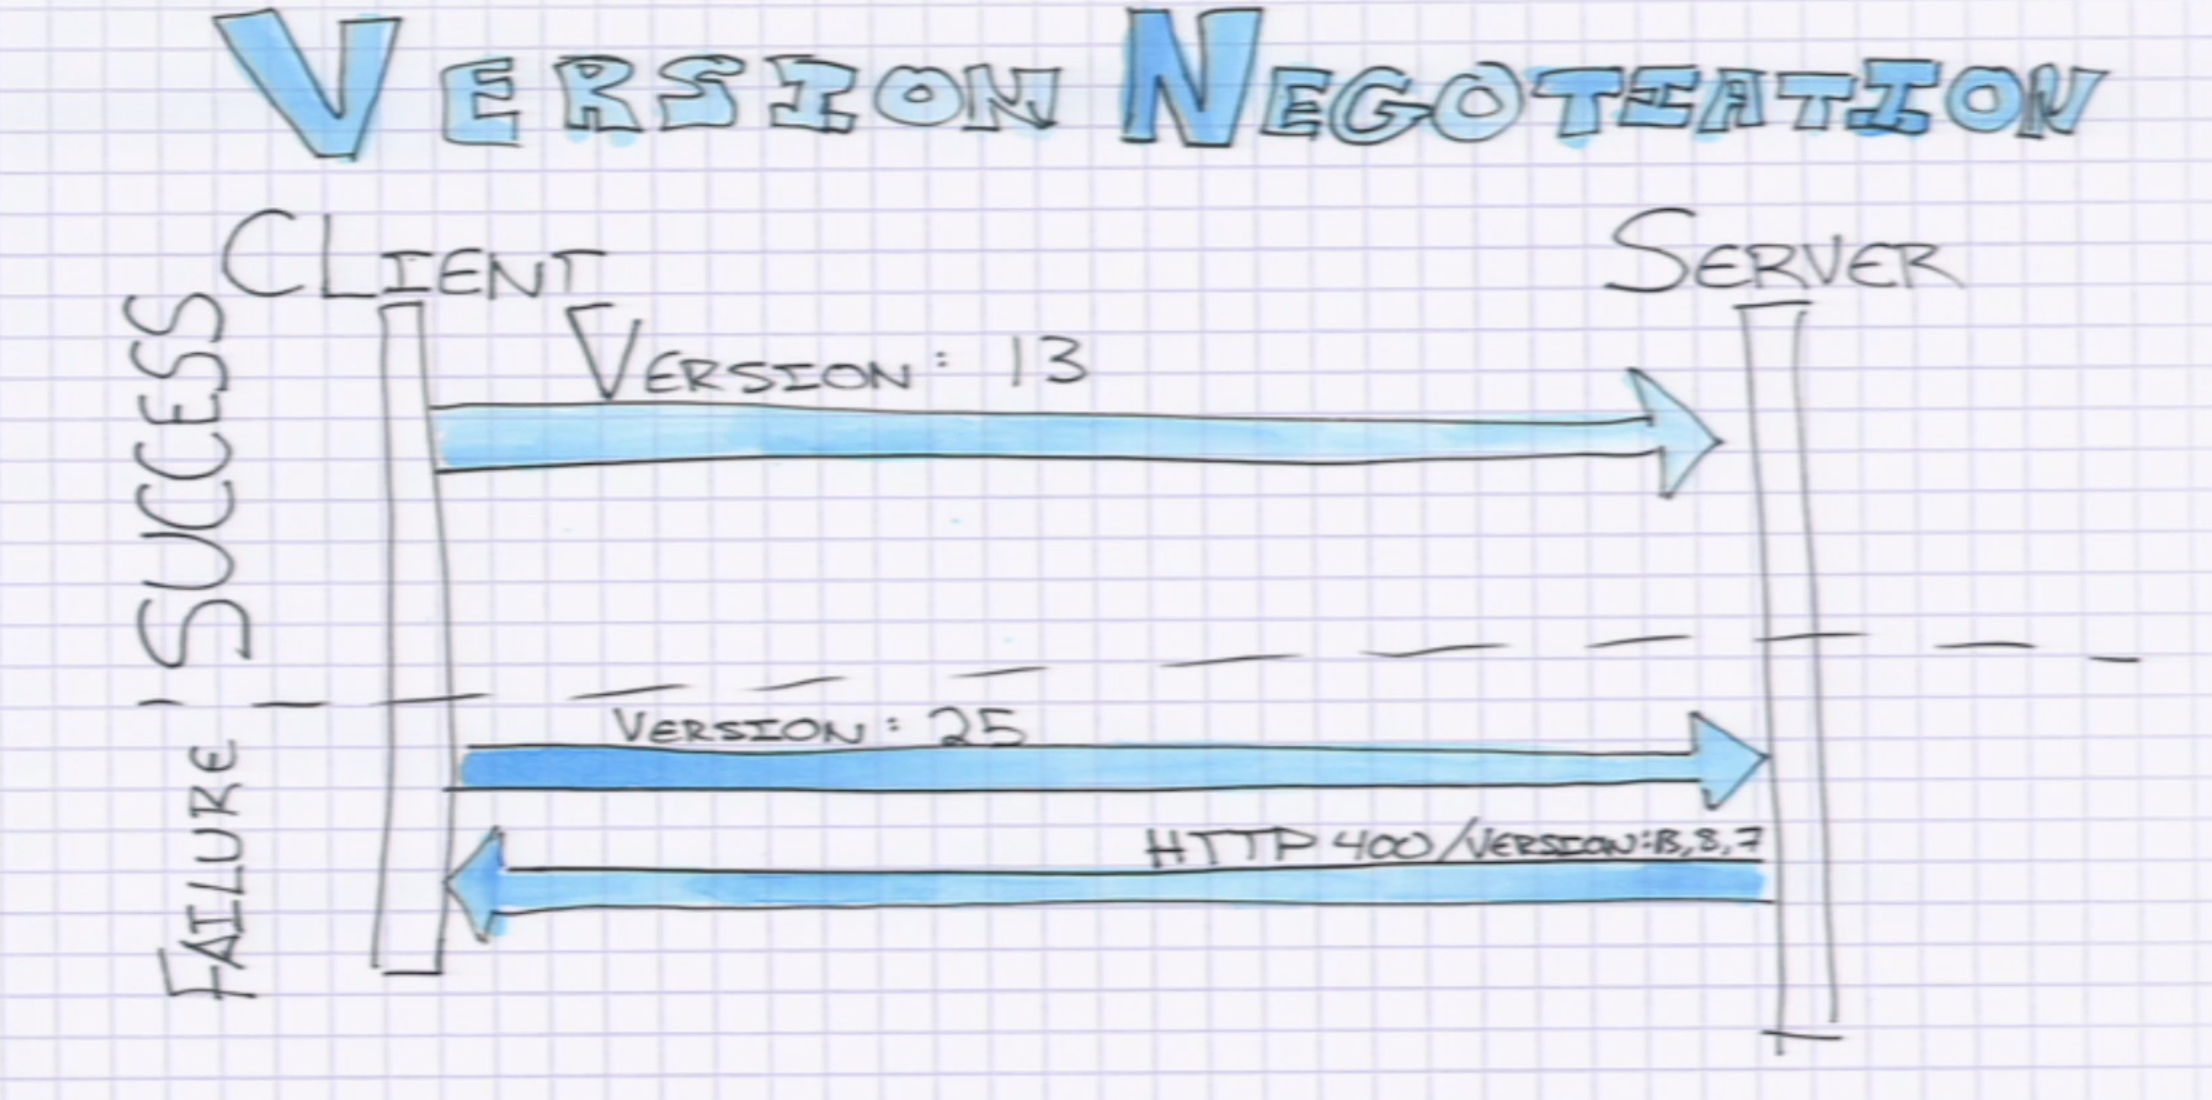 VERSION NEGOTIATION
CLIENT
SERVER
SUCCESS
VERSION: 13
FAILURE
VERSION: 25
HTTP 400/VERSION:13,8,7